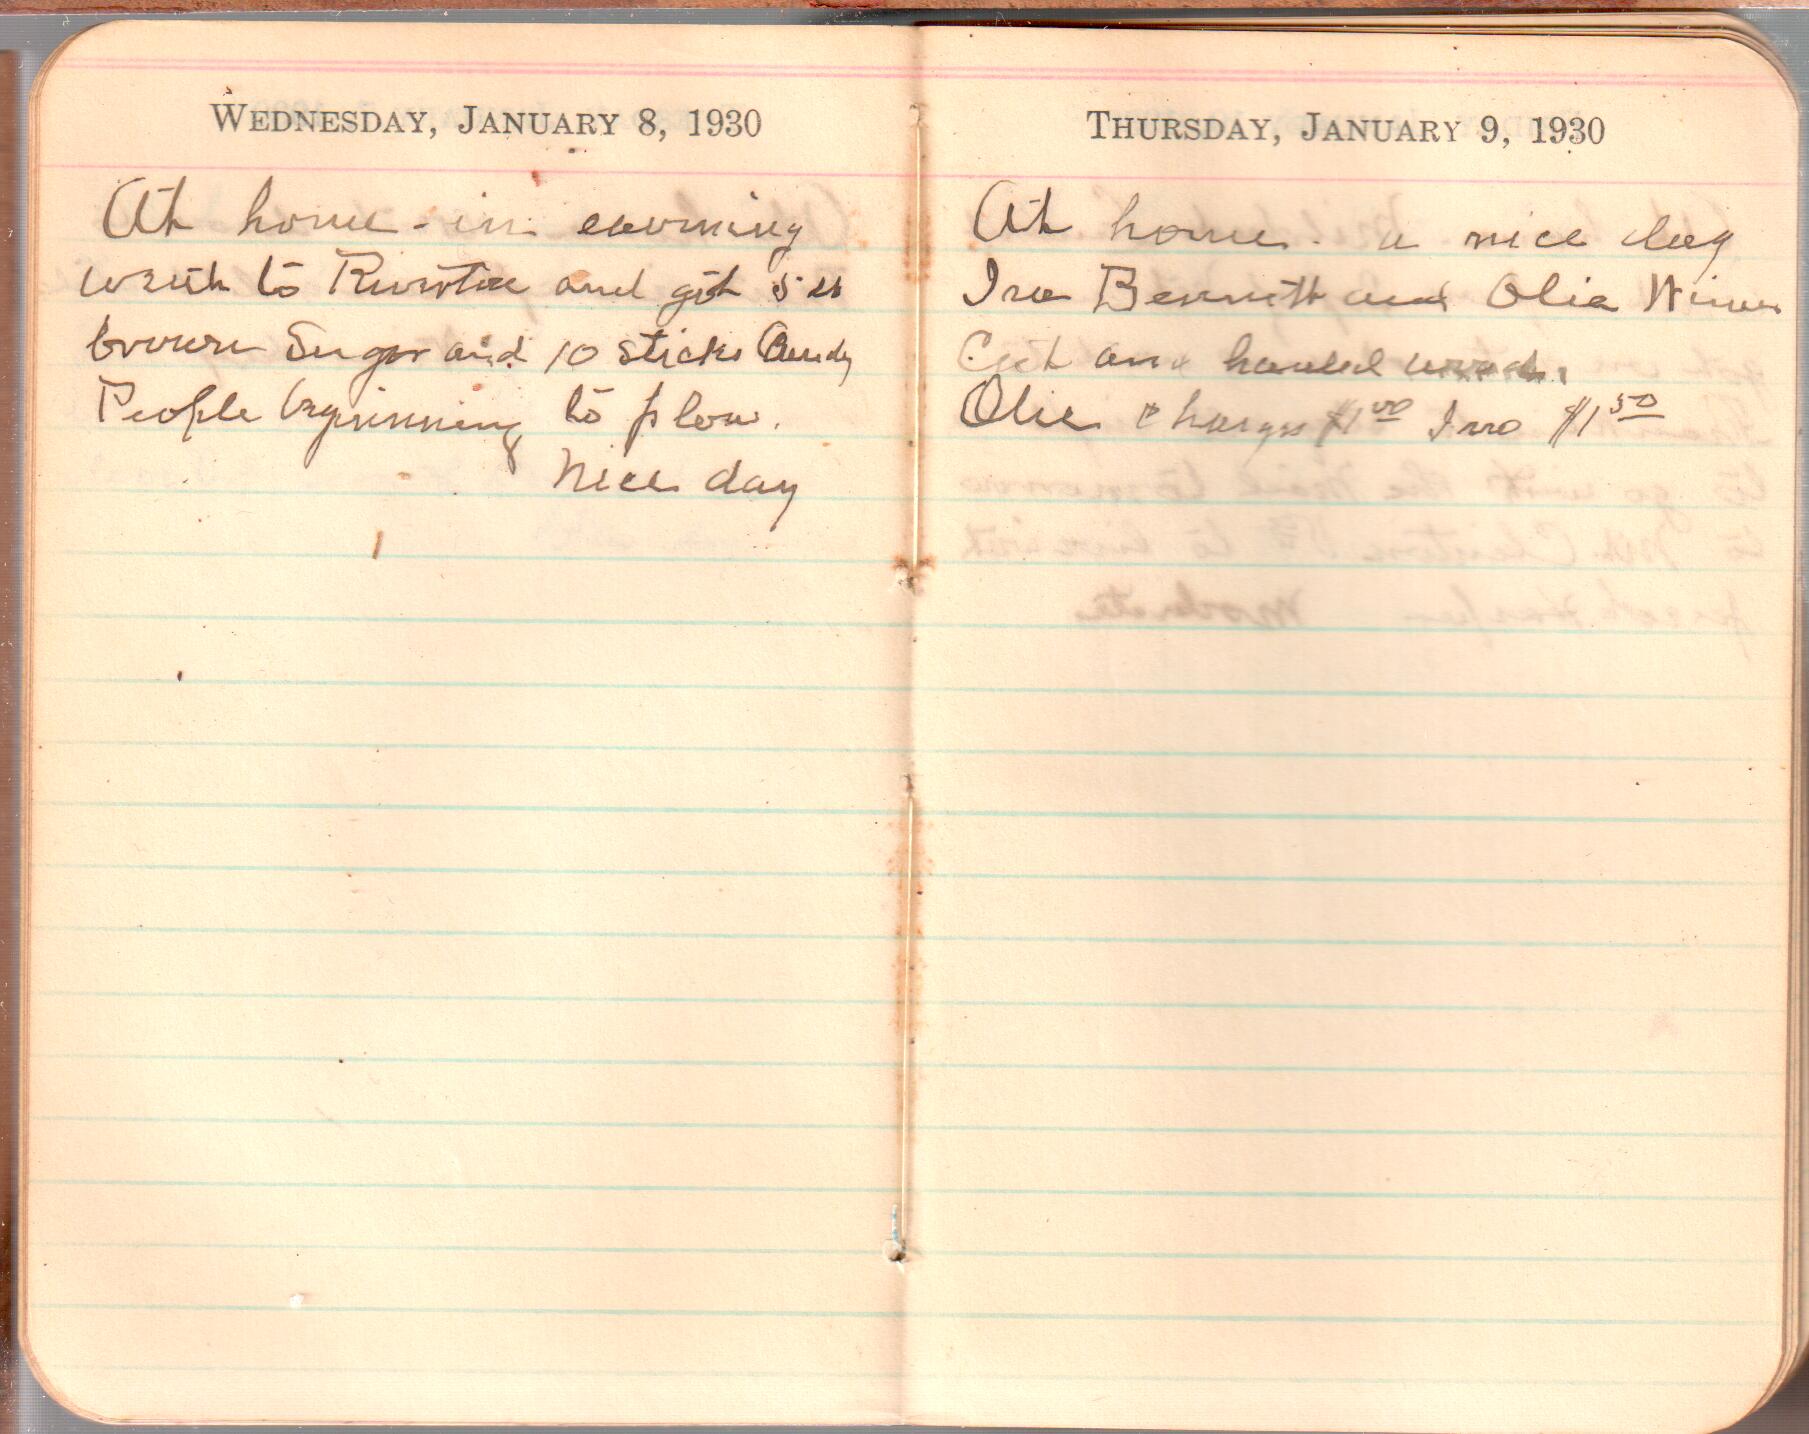 WEDNESDAY, JANUARY 8, 1930
At home - in evening
went to and got 5 lb
brown Sugar and 10 sticks Candy
People beginning to plow.
Nice day
THURSDAY, JANUARY 9, 1930
At home. a nice day
Ira Bennett and Olie
Cut and hauled wood.
Olie charges $1 00 Ira $1 50